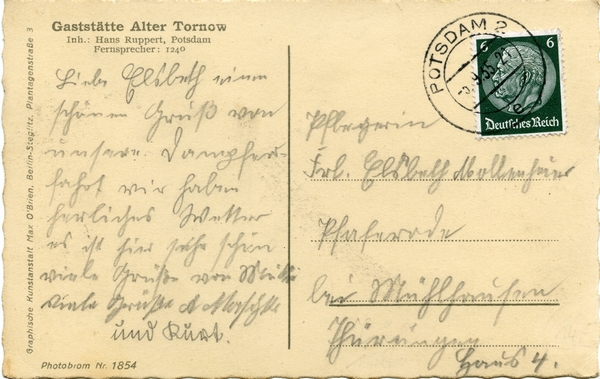 Gaststätte Alter Tornow
Inh.: Hans Ruppert, Potsdam
Fernsprecher: 1240
Liebe Elsbeth einen
schönen Gruß von
unsere Dampfer-
fahrt wir haben
herliches Wetter
es ist hier sehr schön
viele Grüße von
viele Grüße
und Kurt.
Graphische Kunstanstalt Max O'Brien, Berlin-Steglitz, Plantagenstraße 3
Photobrom Nr. 1854
POTSDAM 2
6 6
Deutsches Reich
Pflegerin
Frl. Elsbeth Mollenhauer
Pfaferode
bei Mühlhausen
Thüringen
Haus 4.